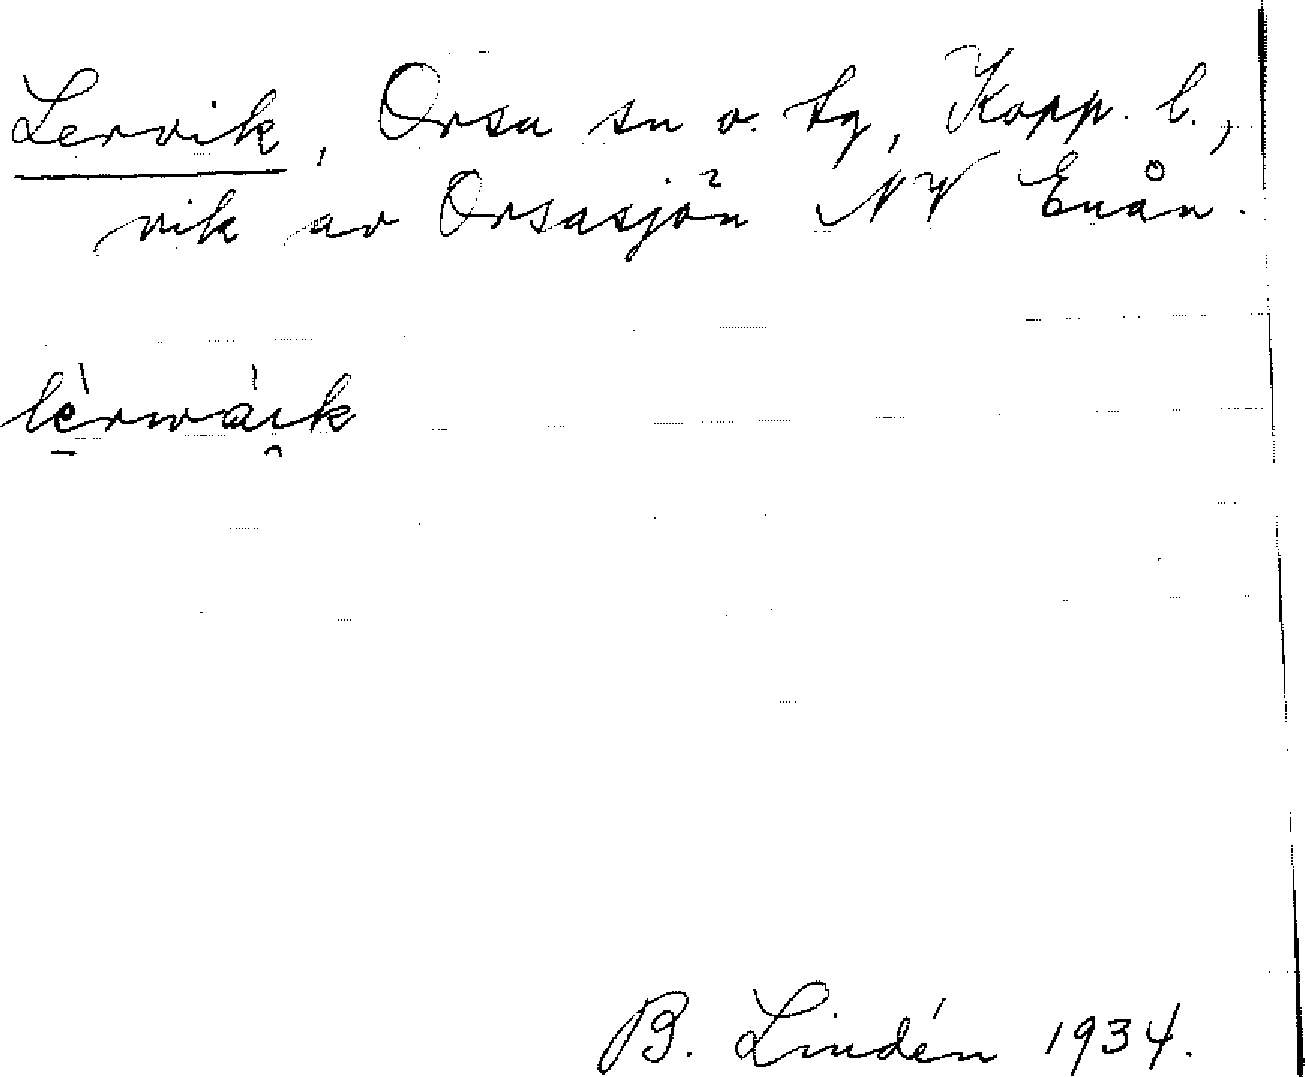 Lervik, Orsa sn o. tg, Kopp. l.,
vik av Orsasjön NV Enån.
lèrwáik
B. Lindén 1934.